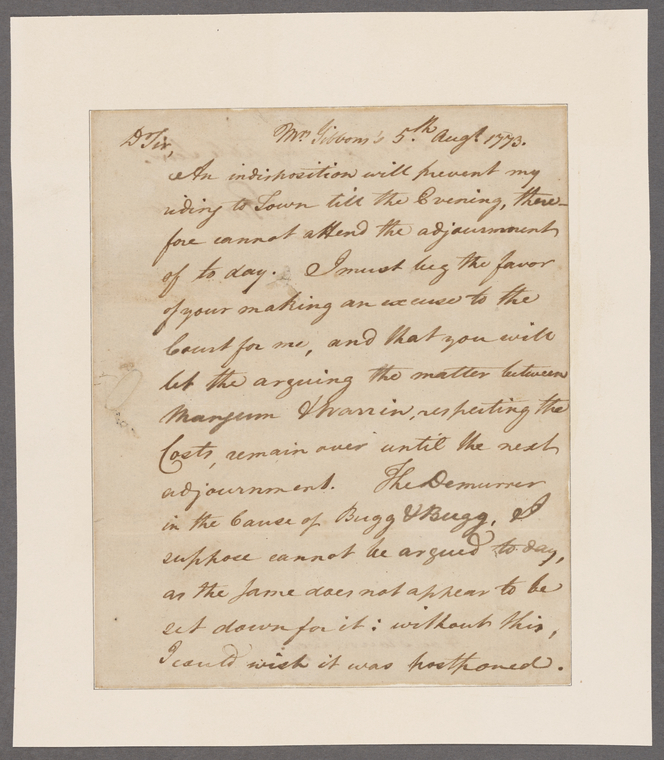 Dr Sir, Mrs Gibbons's 5th Augt 1773.
An indisposition will prevent my
riding to Town till the Evening, there-
fore cannot attend the adjournment
of to day. I must beg the favor
of your making an excuse to the
Court for me, and that you will
let the arguing the matter between
Mangum & Warrin, respecting the
Costs, remain over until the next
adjournment. The Demurrer
in the Cause of Bugg & Bugg, I
suppose cannot be argued to day,
as the same does not appear to be
set down for it: without this,
I could wish it was postponed.